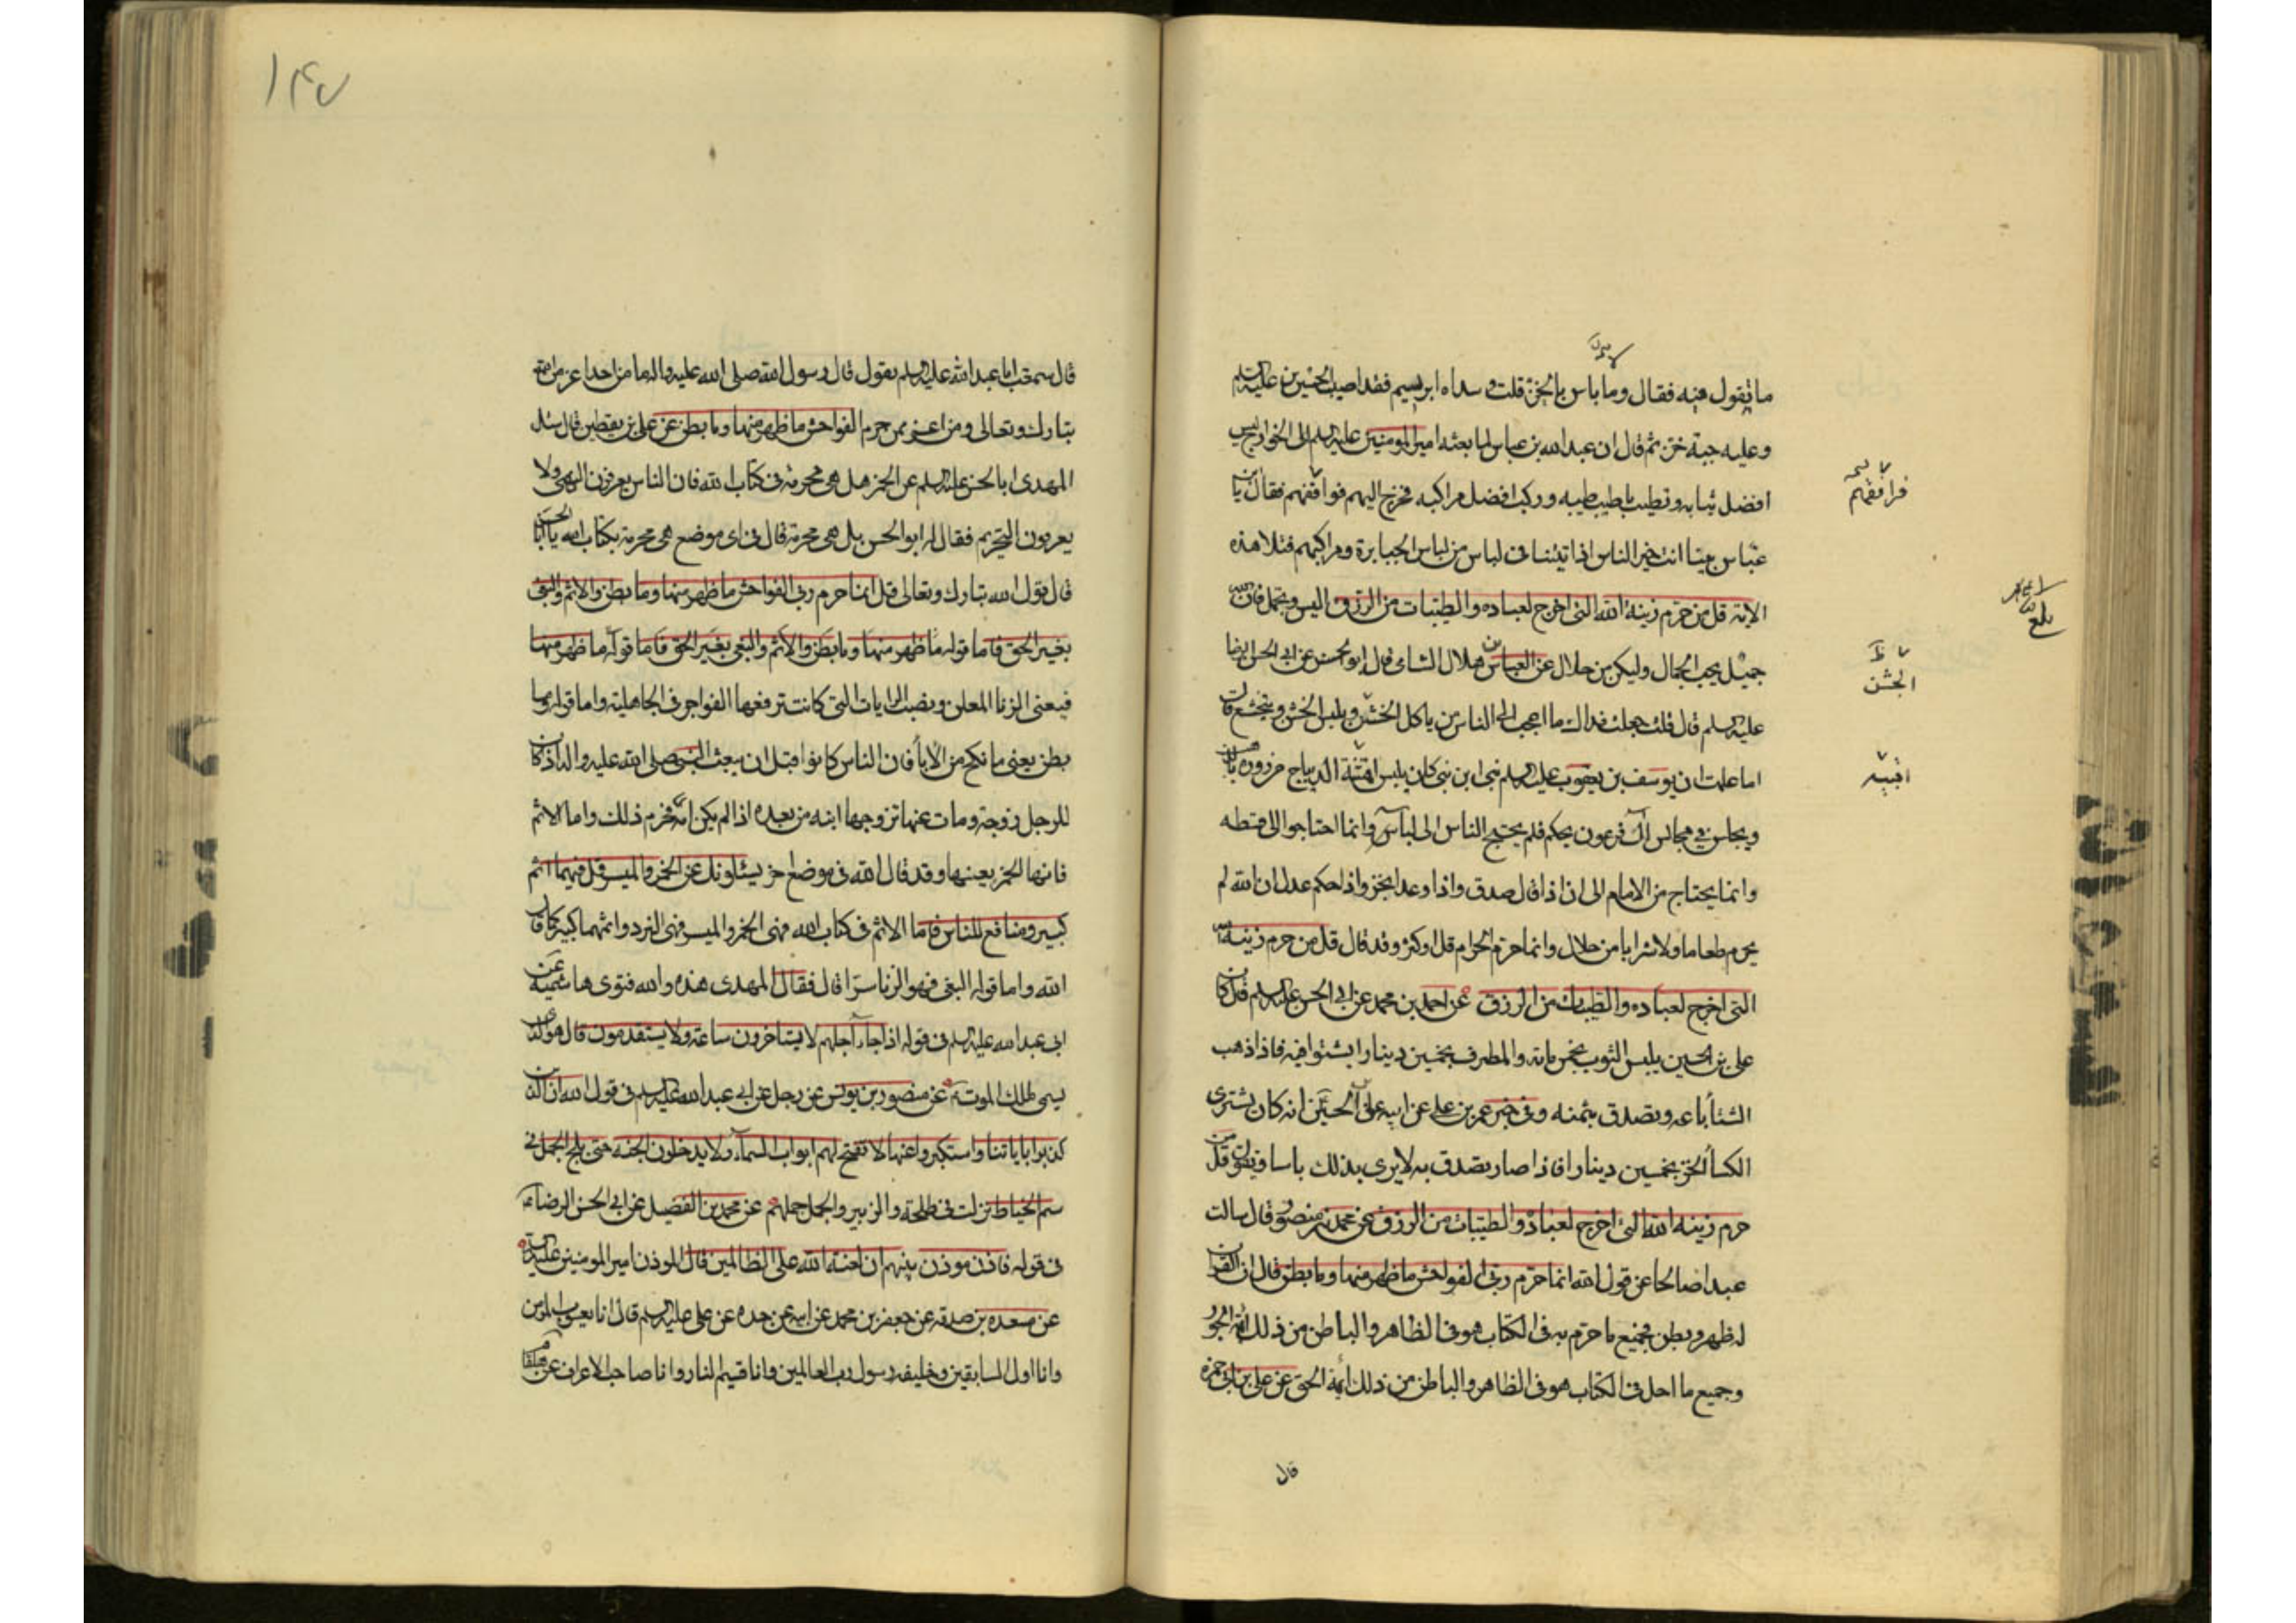 ما تقول فيه فقال وما باس بالخز قلت وسداه ابريسم فقد اصيب الحسين بن عليه السلم
وعليه جبة خز ثم قال ان عبد الله بن عباس لما بعثه امير المومنين عليه السلم الى الخوارج لبس
افضل ثيابه وتطيب باطيب طيبه وركب افضل مراكبه فخرج اليهم فوافقهم فقال يا بن
عباس بينا انت خير الناس اذ اتيتنا فى لباس من لباس الجبابرة ومراكبهم فتلا هذه
الاية قل من حرم زينة الله التى اخرج لعباده والطيبات من الرزق البس وتجمل فان الله
جميل يحب الجمال وليكن من حلال عن العباس بن هلال الشامى قال ابو الحسن عن ابى الحسن الرضا
عليه السلم قال قلت جعلت فداك ما اعجب الى الناس من ياكل الخشن ويلبس الخشن ويتخشع قال
اما علمت ان يوسف بن يعقوب عليه السلم نبى ابن نبى كان يلبس اقبية الديباج مزروره بالذهب
ويجلس فى مجالس آل فرعون يحكم فلم يحتج الناس الى لباسه وانما احتاجوا الى قسطه
وانما يحتاج من الامام الى ان اذا قال صدق واذا وعد انجز واذا حكم عدل ان الله لم
يحرم طعاما ولا شرابا من حلال وانما حرم الحرام قل او كثر وقد قال قل من حرم زينة الله
التى اخرج لعباده والطيبات من الرزق عن احمد بن محمد عن ابى الحسن عليه السلم قال كان
على بن الحسين يلبس الثوب بخمس مائه والمطرف بخمسين دينارا يشتوا فيه فاذا ذهب
الشتا باعه وتصدق بثمنه وفى خبر عمر بن على عن ابيه على بن الحسين انه كان يشترى
الكسا الخز بخمسين دينارا فاذا صاف تصدق به لا يرى بذلك باسا ويقول قل من
حرم زينه الله التى اخرج لعباده والطيبات من الرزق عن محمد بن منصور قال سالت
عبدا صالحا عن قول الله انما حرم ربى الفواحش ما ظهر منها وما بطن قال ان القران
له ظهر وبطن فجميع ما حرم به فى الكتاب هو فى الظاهر والباطن من ذلك ائمة الجور
وجميع ما احل فى الكتاب هو فى الظاهر والباطن من ذلك ائمة الحق عن على بن ابى حمزه
قال
فرافقهم
الخشن
اقبيه
بلغ
١٤٧
قال سمعت ابا عبد الله عليه السلم يقول قال رسول الله صلى الله عليه واله ما من احد اغير من الله
تبارك وتعالى ومن اغير ممن حرم الفواحش ما ظهر منها وما بطن عن على بن يقطين قال سئل
المهدى ابا الحسن عليه السلم عن الخمر هل هى محرمة فى كتاب الله فان الناس يعرفون النهى ولا
يعرفون التحريم فقال له ابو الحسن بل هى محرمة قال فى اى موضع هى محرمة بكتاب الله يا ابا الحسن
قال قول الله تبارك وتعالى قل انما حرم ربى الفواحش ما ظهر منها وما بطن والاثم والبغى
بغير الحق فاما قوله ما ظهر منها وما بطن والاثم والبغى بغير الحق فاما قوله ما ظهر منها
فيعنى الزنا المعلن ونصب الرايات التى كانت ترفعها الفواجر فى الجاهلية واما قوله وما
بطن يعنى ما نكح من الابا فان الناس كانوا قبل ان يبعث النبى صلى الله عليه واله اذ كان
للرجل زوجة ومات عنها تزوجها ابنه من بعده اذا لم يكن امه فحرم ذلك واما الاثم
فانها الخمر بعينها وقد قال الله فى موضع اخر يسئلونك عن الخمر والميسر قل فيهما اثم
كبير ومنافع للناس فاما الاثم فى كتاب الله فهى الخمر والميسر فهى النرد واثمهما كبير كما قال
الله واما قوله البغى فهو الزنا سرا قال فقال المهدى هذه والله فتوى هاشمية عن
ابى عبد الله عليه السلم فى قوله اذا جاء اجلهم لا يستاخرون ساعة ولا يستقدمون قال هو الذى
يسمى لملك الموت عن منصور بن يونس عن رجل عن ابى عبد الله عليه السلم فى قول الله ان الذين
كذبوا باياتنا واستكبروا عنها لا تفتح لهم ابواب السماء ولا يدخلون الجنه حتى يلج الجمل فى
سم الخياط نزلت فى طلحة والزبير والجمل جملهم عن محمد بن الفضيل عن ابى الحسن الرضا
فى قوله فاذن موذن بينهم ان لعنة الله على الظالمين قال الموذن امير المومنين عليه السلم
عن مسعده بن صدقه عن جعفر بن محمد عن ابيه عن جده عن على عليه السلم قال انا يعسوب المومنين
وانا اول السابقين وخليفه رسول رب العالمين وانا قسيم النار وانا صاحب الاعراف عن هلقام